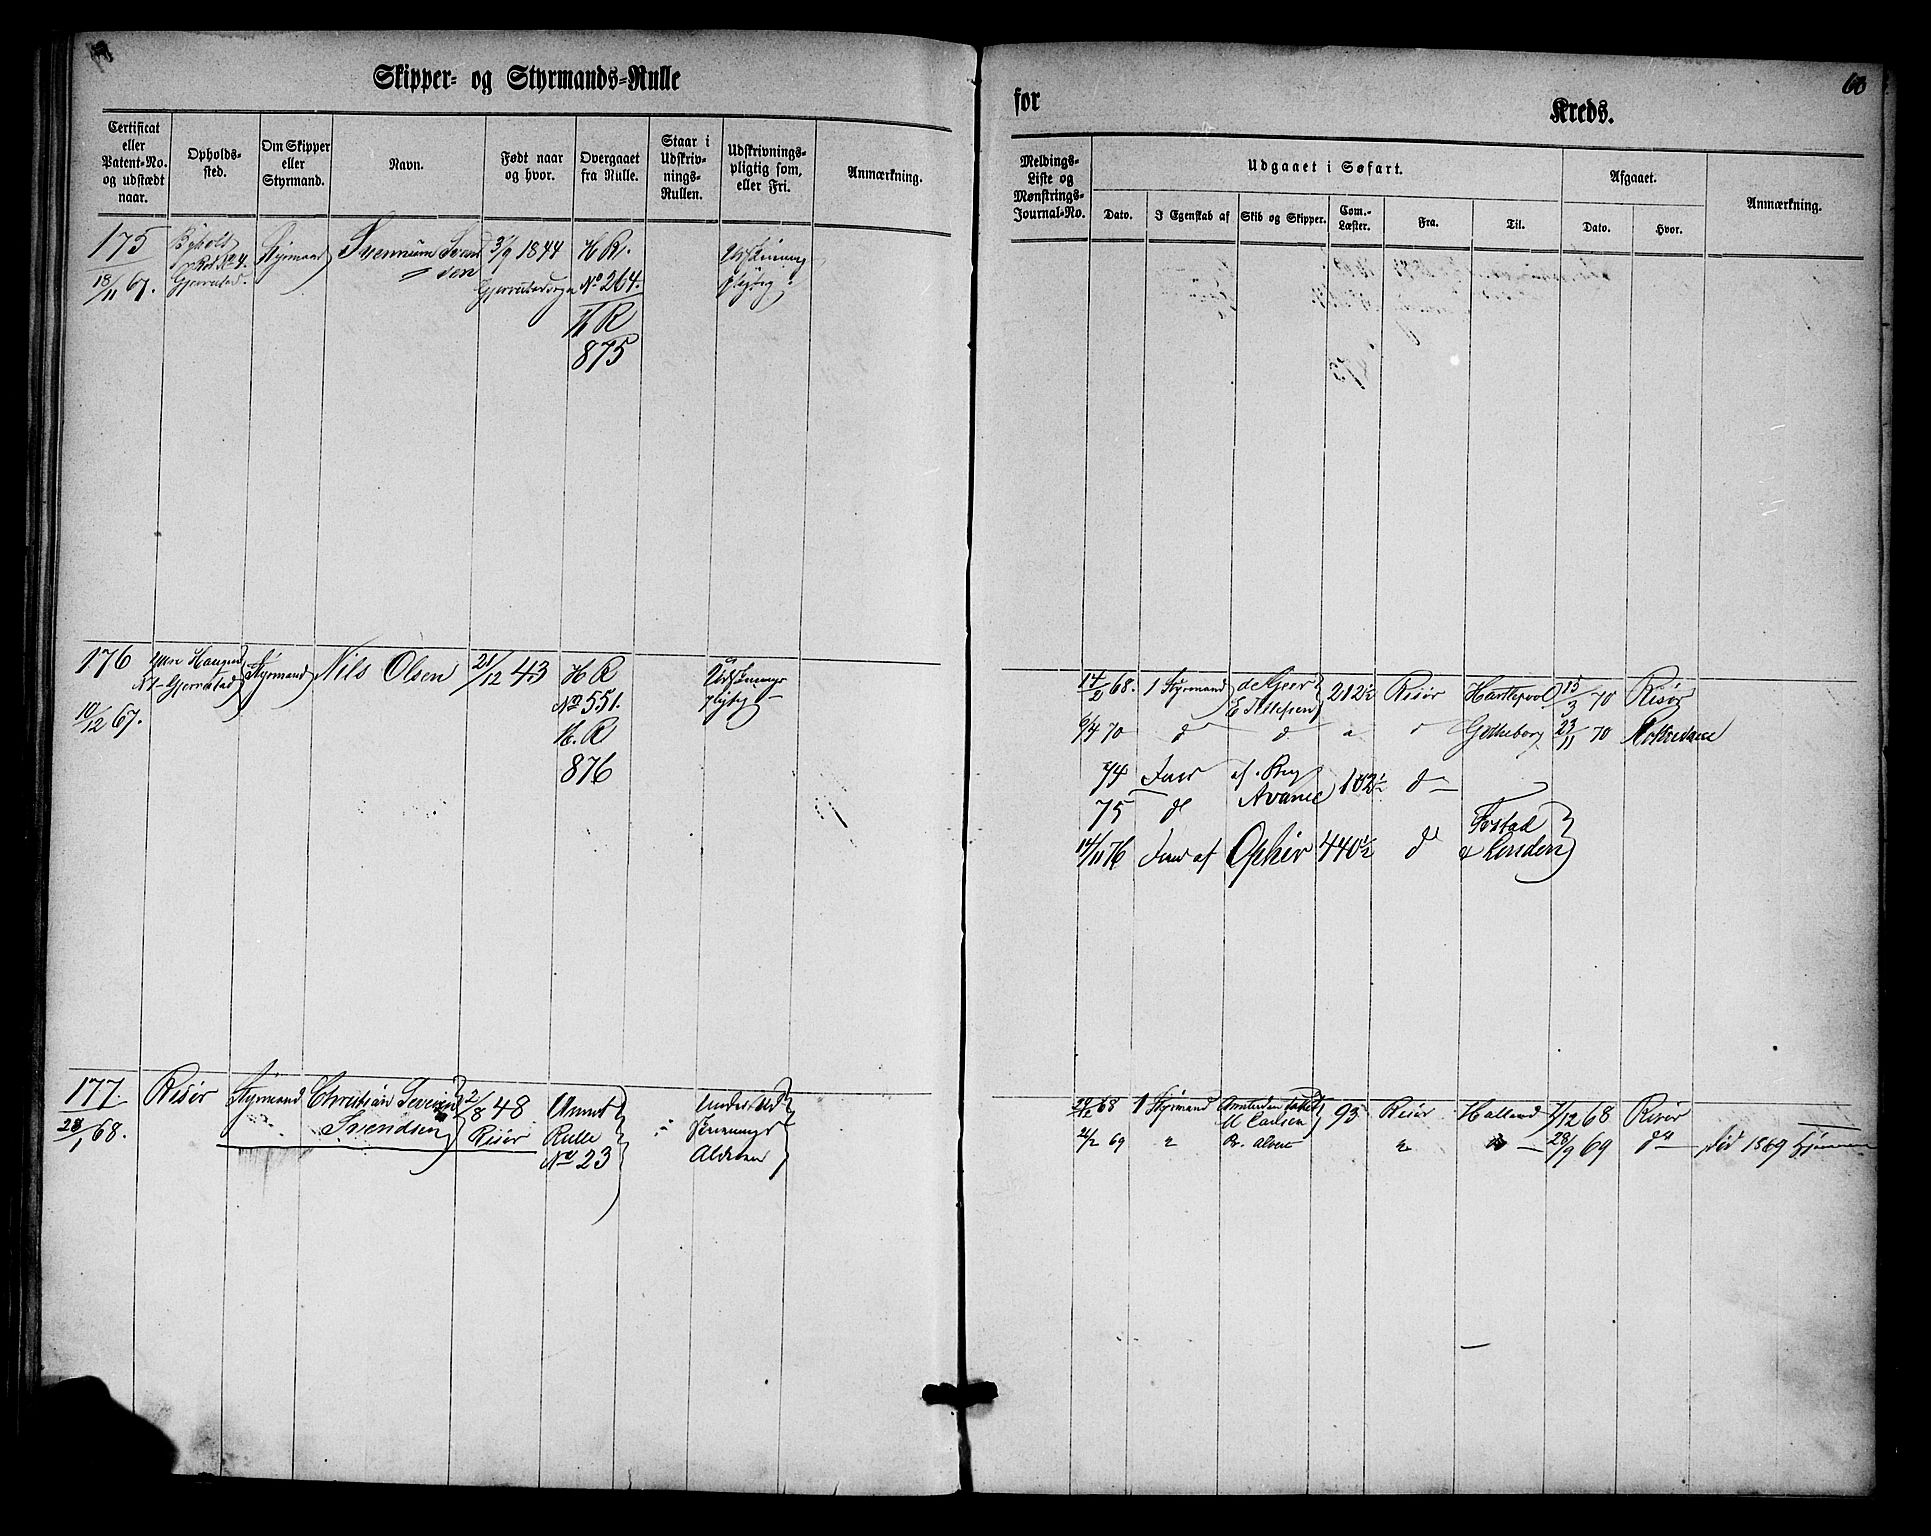 Skipper- og Styrmands-Rulle
Certificat eller Patent-No. og udstædt naar.
Opholds-sted.
Om Skipper eller Styrmand.
Navn.
Født naar og hvor.
Overgaaet fra Rulle.
Staar i Udskriv-nings-Rullen.
Udskrivnings-pligtig som, eller Fri.
Anmærkning.
175
18/11 67.
Gjerrestad
Styrmand
Svennum Svend
sen
3/9 1844
H R.
No 264.
H R
875
Udskrivnings
pligtig
176
10/12 67.
Gjerrestad
Styrmand
Nils Olsen
21/12 43
H R
No 551.
H. R
876
Udskrivnings
pligtig
177.
28/1 68.
Risør
Styrmand
Christian Severin
Svendsen
2/8 48
Risør
Rulle
No 23
Under Ud
skrivnings
Alderen
60
for Kreds.
Meldings-Liste og Mønstrings-Journal-No.
Udgaaet i Søfart.
Dato.
I Egenskab af
Skib og Skipper.
Com.-Læster.
Fra.
Til.
Afgaaet.
Dato.
Hvor.
Anmærkning.
14/2 68. 1 Styrmand de Geer 212½ Risør Hartlepool 15/3 70 Risør
6/4 70 d d Gøtheborg 23/11 70
74 Fører af Brig 102½ d
75 d Avance
14/11 76 Fører af Ophir 440½ d
London
68 1 Styrmand 93 Risør Holland 7/12 68 Risør
21/2 69 28/9 69 do død 1869